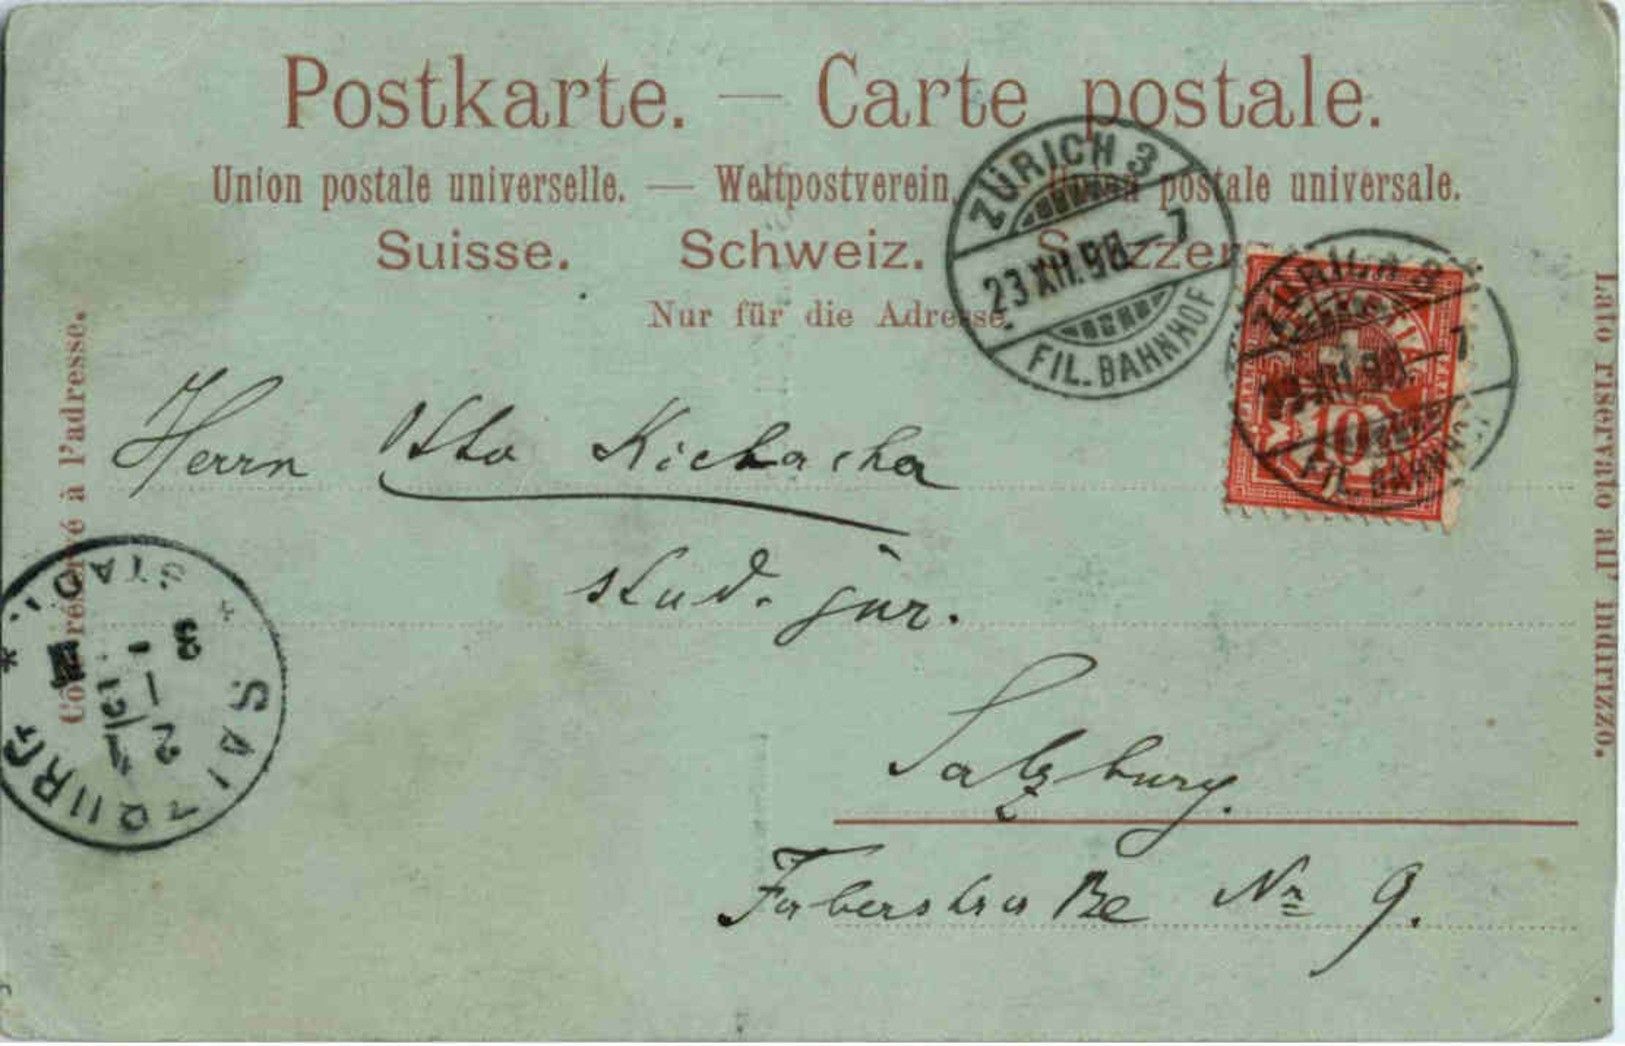 Postkarte. — Carte postale.
Union postale universelle. — Weltpostverein. postale universale.
Suisse. Schweiz. Svizzera
Nur für die Adresse.
Côté réservé à l'adresse.
Lato riservato all' indirizzo.
ZÜRICH 3
23 XII. 98. — 7
FIL. BAHNHOF
ZÜRICH 3
XII. 98. — 7
FIL. BAHNHOF
10
Herrn Otto
stud. jur.
Salzburg.
Faberstraße Nr 9.
SALZBURG
STADT